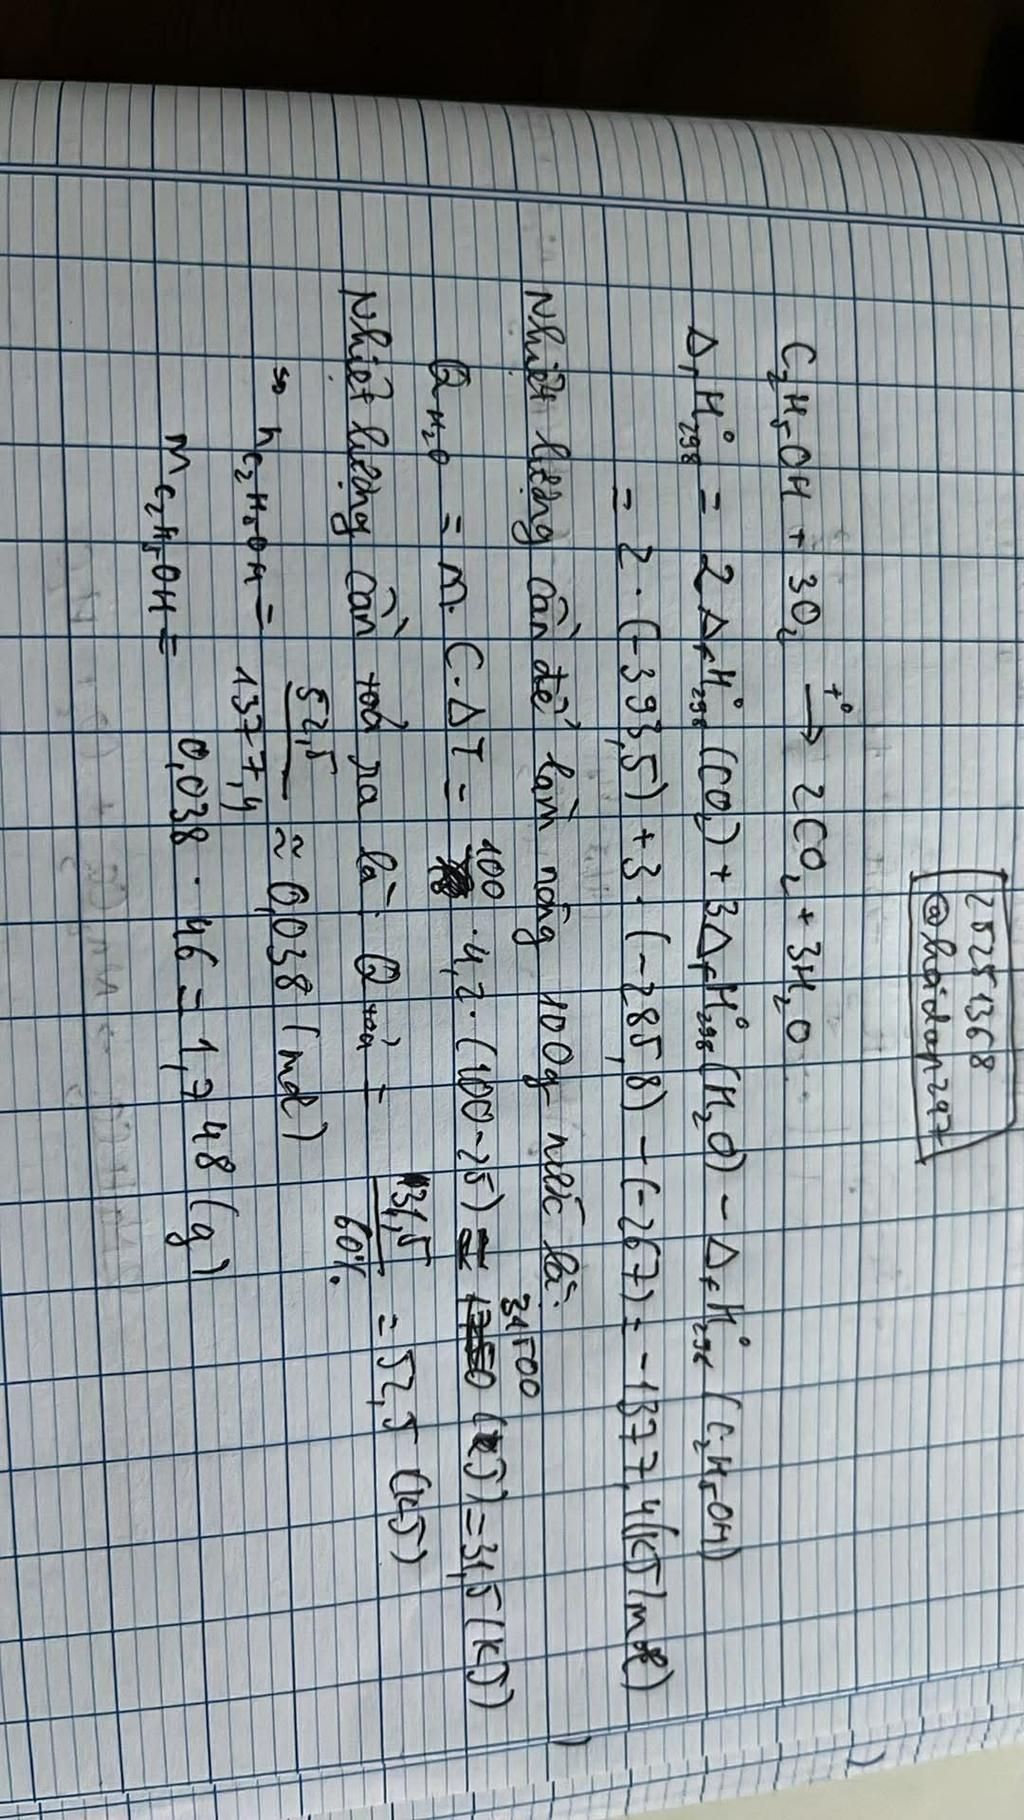 25251368
@hoidap247
C₂H₅OH + 3O₂ →(t°) 2CO₂ + 3H₂O
ΔᵣH°₂₉₈ = 2ΔfH°₂₉₈(CO₂) + 3ΔfH°₂₉₈(H₂O) - ΔfH°₂₉₈(C₂H₅OH)
= 2·(-393,5) + 3·(-285,8) - (-267) = -1377,4 (kJ/mol)
Nhiệt lượng cần để làm nóng 100g nước là:
Q H₂O = m·C·ΔT = 100·4,2·(100-25) = 31500 (J) = 31,5 (KJ)
Nhiệt lượng cần toả ra là: Q toả = 31,5/60% = 52,5 (KJ)
=> n C₂H₅OH = 52,5/1377,4 ≈ 0,038 (mol)
m C₂H₅OH = 0,038 · 46 = 1,748 (g)